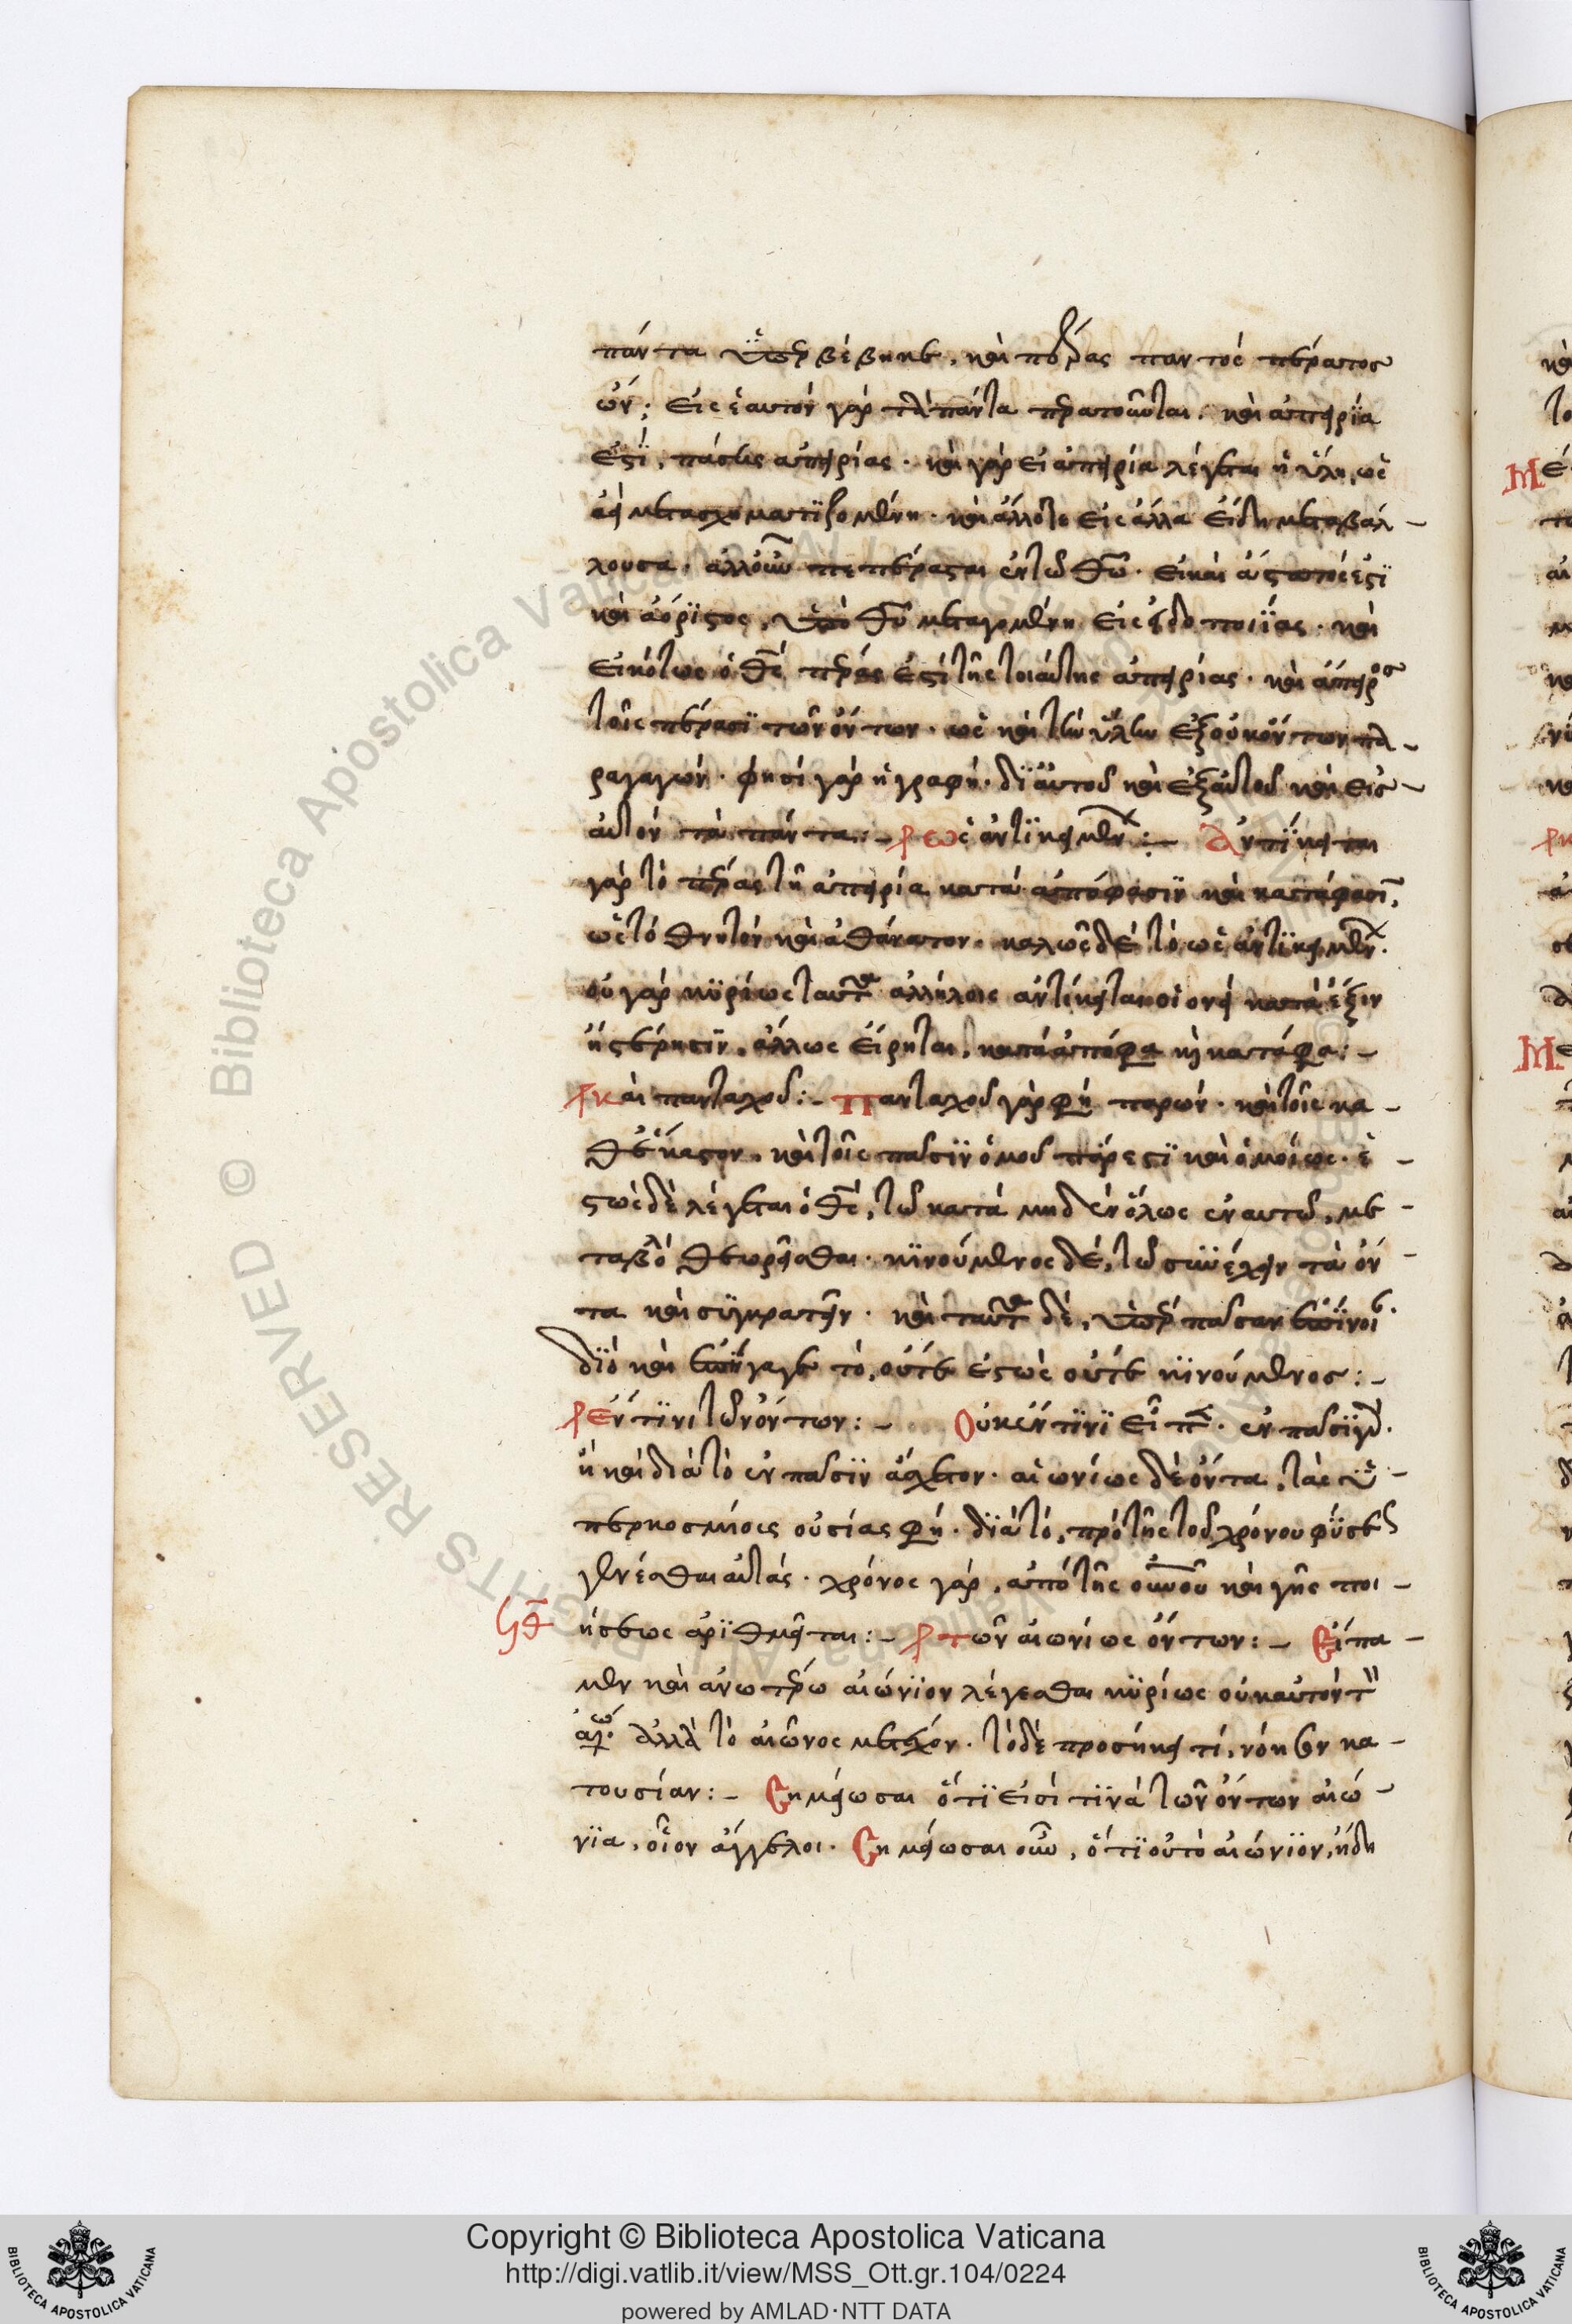 πάντα ὑπερβέβηκε, καὶ πέρας παντὸς πέρατος
ὤν; εἰς ἑαυτὸν γὰρ τὰ πάντα περατοῦται. καὶ ἀπειρία
ἐστὶ, πάσης ἀπειρίας. καὶ γὰρ εἰ ἀπειρία λέγεται ἡ ὕλη, ὡς
ἀεὶ μετασχηματιζομένη. καὶ ἄλλοτε εἰς ἄλλα εἴδη μεταβάλ-
λουσα. ἀλλ' οὖν πεπέρασται ἐν τῶ θῶ. εἰ καὶ ἄστατός ἐστι
καὶ ἀόριστος, ὑπὸ θυ μεταγομένη εἰς εἰδοποιΐας. καὶ
εἰκότως ὁ θς πέρας ἐστὶ τῆς τοιαύτης ἀπειρίας. καὶ ἄπειρος
τοῖς πέρασι τῶν ὄντων. ὡς καὶ τὴν ὕλην ἐξ οὐκ ὄντων πα-
ραγαγών. φησὶ γὰρ ἡ γραφή. δι' αὐτοῦ καὶ ἐξ αὐτοῦ καὶ εἰς-
αὐτὸν τὰ πάντα:- ὡς ἀντικείμεν:- Ἀντίκειται
γὰρ τὸ πέρας τῆ ἀπειρία κατὰ ἀπόφασιν καὶ κατάφασιν,
ὡς τὸ θνητὸν καὶ ἀθάνατον. καλῶς δὲ τὸ ὡς ἀντικείμεν.
οὐ γὰρ κυρίως ταῦτα ἀλλήλοις ἀντίκειται κατὰ ἕξιν
ἢ στέρησιν. ἄλλως εἴρηται, κατὰ ἀπόφα καὶ κατάφα:-
καὶ πανταχοῦ:- Πανταχοῦ γὰρ φη παρών. καὶ τοῖς κα-
θέκαστον. καὶ τοῖς πᾶσιν ὁμοῦ πάρεστι καὶ ὁμοίως. ἑ-
στὼς δὲ λέγεται ὁ θς, τῶ κατὰ μηδὲν ὅλως ἐν αὐτῶ, με-
ταβολὴ θεωρεῖσθαι. κινούμενος δὲ, τῶ συνέχειν τὰ ὄν-
τα καὶ συγκρατεῖν. καὶ ταῦτα δὲ, ὑπὲρ πᾶσαν ἐπίνοι.
διὸ καὶ ἐπήγαγε τὸ, οὔτε ἑστὼς οὔτε κινούμενος:-
ἔν τινι τῶν ὄντων:- Οὐκ ἔν τινι εἶπε. ἐν πᾶσι γὰρ.
ἢ καὶ διὰ τὸ ἐν πᾶσιν ἄσχετον. αἰωνίως δὲ ὄντα, τὰς ὑ-
περκοσμίοις οὐσίας φη. διὰ τὸ, πρὸ τῆς τοῦ χρόνου φύσεως
γενέσθαι αὐτάς. χρόνος γὰρ, ἀπὸ τῆς οὐνοῦ καὶ γῆς ποι-
ήσεως ἀριθμεῖται:- τῶν αἰωνίως ὄντων:- Εἴπα-
μεν καὶ ἀνωτέρω αἰώνιον λέγεσθαι κυρίως οὐκ αὐτὸν τὸν
αἰῶ. ἀλλὰ τὸ αἰῶνος μετέχον. τὸ δὲ προσήκει τί, νόησιν κα-
τουσίαν:- Σημείωσαι ὅτι εἰσί τινα τῶν ὄντων αἰώ-
νια, οἷον ἄγγελοι. Σημείωσαι οὖν, ὅτι οὐ τὸ αἰώνιον, ἤδη
Copyright © Biblioteca Apostolica Vaticana
http://digi.vatlib.it/view/MSS_Ott.gr.104/0224
powered by AMLAD·NTT DATA